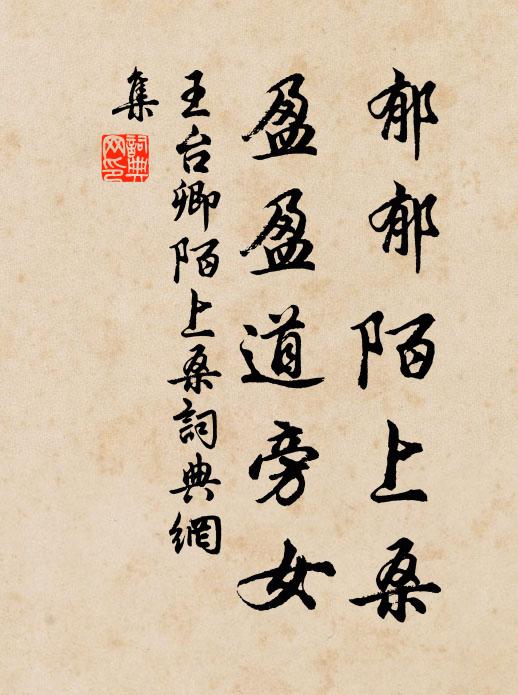 郁郁陌上桑
盈盈道旁女
王台卿陌上桑詞典網
集
詞典
网印